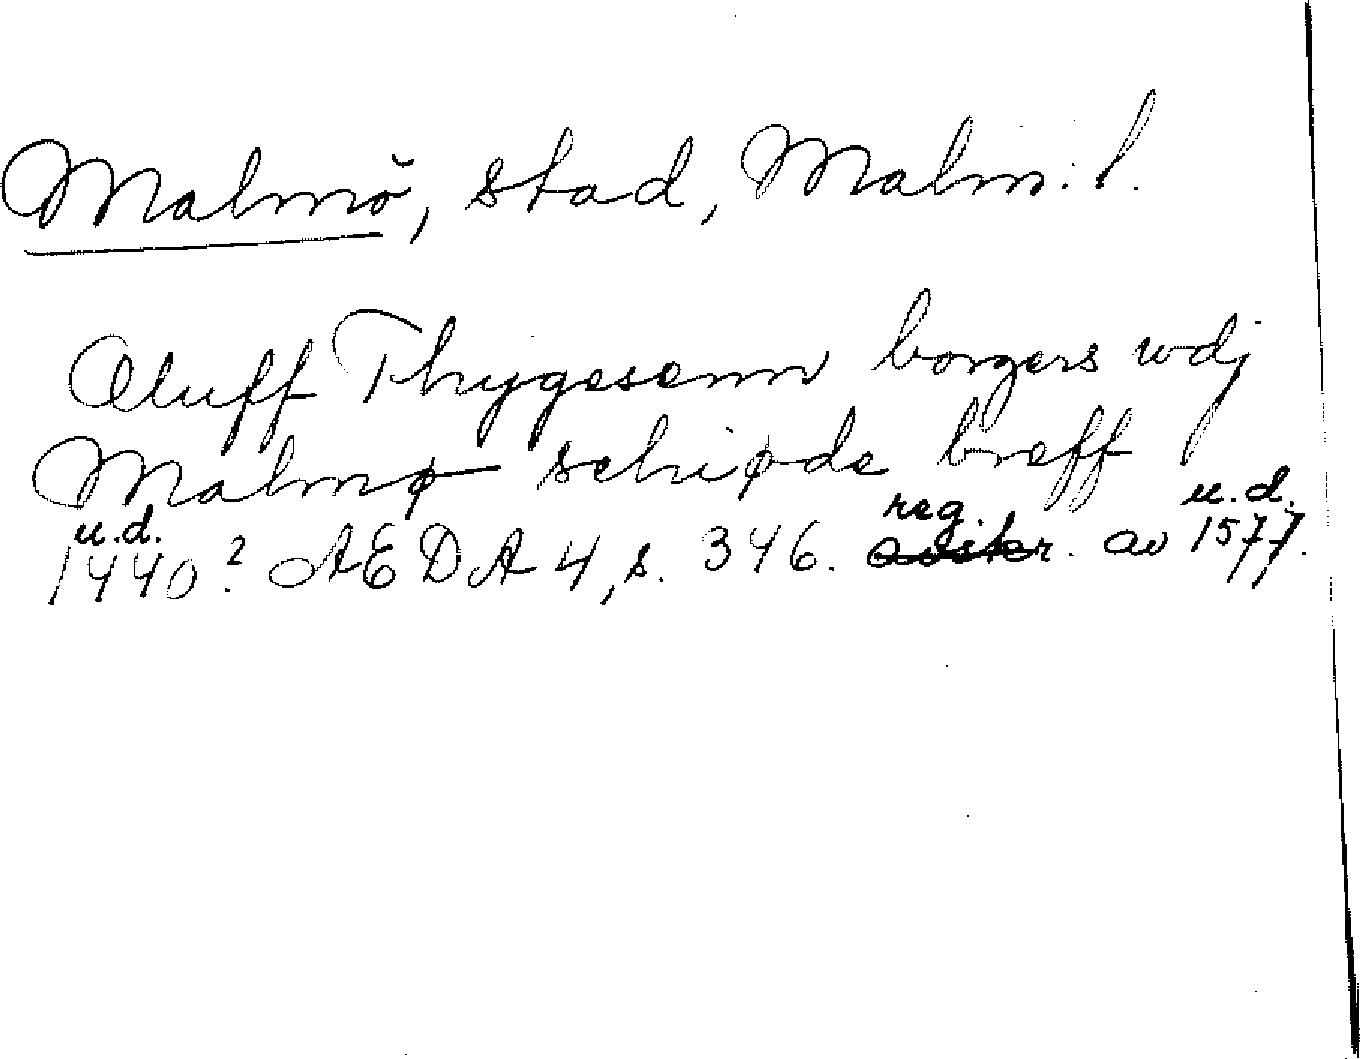 Malmö, stad, Malm. l.
Oluff Thygesenn borgers wdj
Malmø schiøde breff
u.d. reg u.d.
1440? AEDA 4, s. 346. avskr. av 1577.